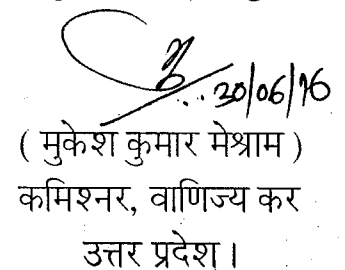 30/06/16
( मुकेश कुमार मेश्राम )
कमिश्नर, वाणिज्य कर
उत्तर प्रदेश ।